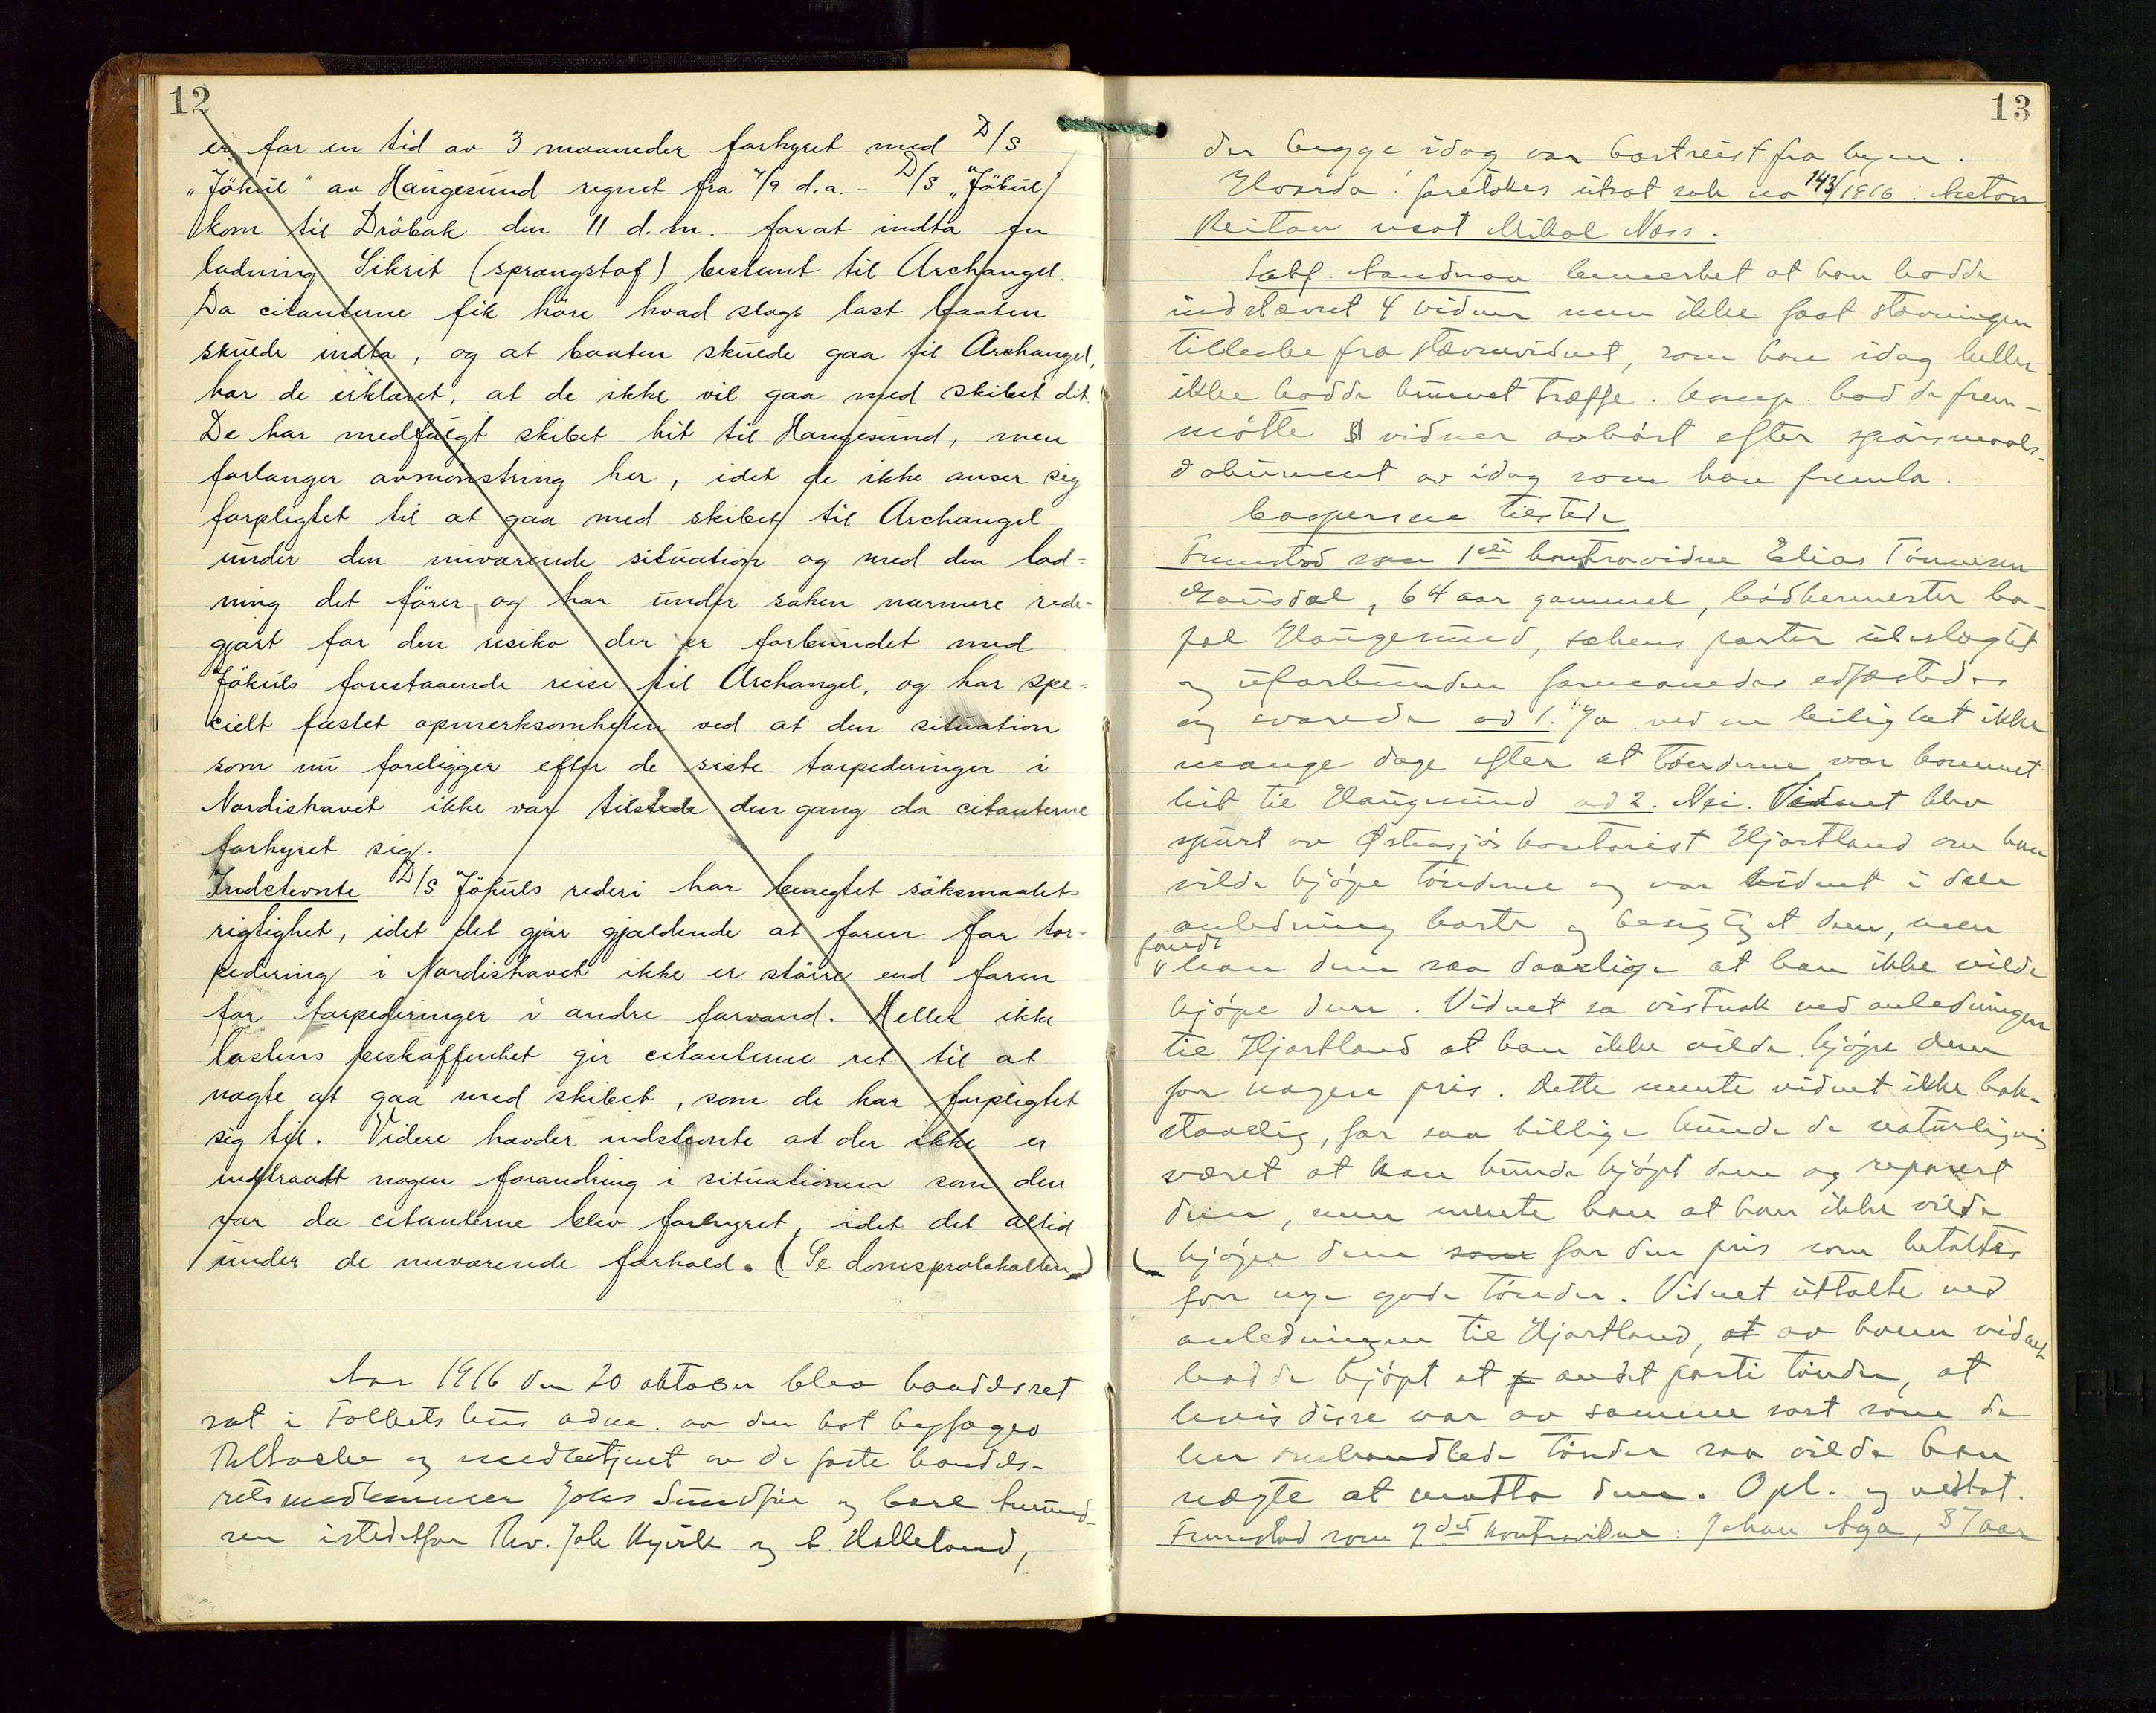 12
er for en tid av 3 maaneder forhyret med D/S
„Jökul" av Haugesund regnet fra 4/9 d.a. - D/S „Jökul"
kom til Dröbak den 11 d.m. forat indta en
ladning Sikrit (sprængstof) bestemt til Archangel.
Da citanterne fik höre hvad slags last baaten
skulde indta, og at baaten skulde gaa til Archangel,
har de erklæret, at de ikke vil gaa med skibet dit.
De har medfulgt skibet hit til Haugesund, men
forlanger avmönstring her, idet de ikke anser sig
forpligtet til at gaa med skibet til Archangel
under den nuværende situation og med den lad-
ning det förer, og har under saken nærmere rede-
gjort for den risiko der er forbundet med
Jökuls forestaaende reise til Archangel, og har spe-
cielt fæstet opmerksomheten ved at den situation
som nu foreligger efter de siste torpederinger i
Nordishavet ikke var tilstede den gang da citanterne
forhyret sig.
Indstevnte D/S Jökuls rederi har benegtet söksmaalets
rigtighet, idet det gjör gjældende at faren for tor-
pedering i Nordishavet ikke er större end faren
for torpederinger i andre farvand. Heller ikke
lastens beskaffenhet gir citanterne ret til at
nægte at gaa med skibet, som de har forpligtet
sig til. Videre hævder indstevnte at der ikke er
indtraadt nogen forandring i situationen som den
var da citanterne blev forhyret, idet det altid
under de nuværende forhold. (Se domsprotokollen)
Aar 1916 den 20 oktober blev handelsret
sat i Folkets hus adm. av den kst byfoged
og medbetjent av de faste handels-
retsmedlemmer Johs Sundför og Carl Amund-
sen istedetfor Thv. Joh Kyvik og C. Helleland,
13
der begge idag var bortreist fra byen.
Hvorda: foretokes utsat sak no 143/1916: Anton
Reitan mot Mikal Næss.
Sakf. bemerket at han hadde
indstævnet 4 vidner men ikke faat stævningen
tilbake fra stævnevidnet, som han idag heller
ikke hadde kunnet træffe. Komp. bad de frem-
møtte vidner avhört efter spörsmaals-
dokument av idag som han fremla.
Caspersen tilstede
Fremstod som 1ste kontravidne Elias Tönnesen
Gausdal, 64 aar gammel, bödkermester bo-
pæl Haugesund, sakens parter ubeslægtet
og uforbunden formanedes edfæstedes
og svarede ad 1. Ja ved en leilighet ikke
mange dage efter at tönderne var kommet
hit til Haugesund ad 2. Nei. Vidnet blev
spurt av Østensjös kontorist Hjortland om han
vilde kjöpe tönderne og var vidnet i den
anledning borte og besigtiget dem, men
fandt
han dem saa daarlige at han ikke vilde
kjöpe dem. Vidnet sa vistnok ved anledningen
til Hjortland at han ikke vilde kjöpe dem
for nogen pris. Dette mente vidnet ikke bok-
stavelig, for saa billige kunde de naturligvis
været at han kunde kjöpt dem og reparert
dem, men mente han at han ikke vilde
kjöpe dem som for den pris som betaltes
for nye gode tönder. Vidnet uttalte ved
anledningen til Hjortland, at av hvem vidnet
hadde kjöpt et p andet parti tönder, at
hvis disse var av samme sort som de
her omhandlede tönder saa vilde han
nægte at motta dem. Opl. og vedtat.
Fremstod som 2det kontravidne: Johan Aga, 37 aar